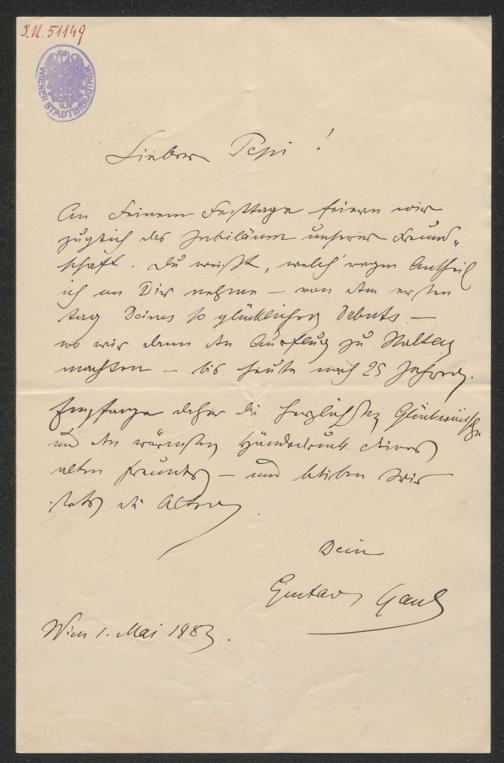 J.N. 51149
WIENER STADTBIBLIOTHEK
Lieber Pepi!
An Deinem Festtage feiern wir
zugleich das Jubiläum unserer Freund-
schaft. Du weißt, welch' regen Antheil
ich an Dir nehme – von dem ersten
Tag Deines so glücklichen Debuts –
wo wir dann den Ausflug zu
machten – bis heute nach 25 Jahren.
Empfange daher die herzlichsten Glückwünsche
und den wärmsten Händedruck Deines
alten Freundes – und bleiben wir
stets die Alten.
Dein
Gustav Gaul
Wien 1. Mai 1883.